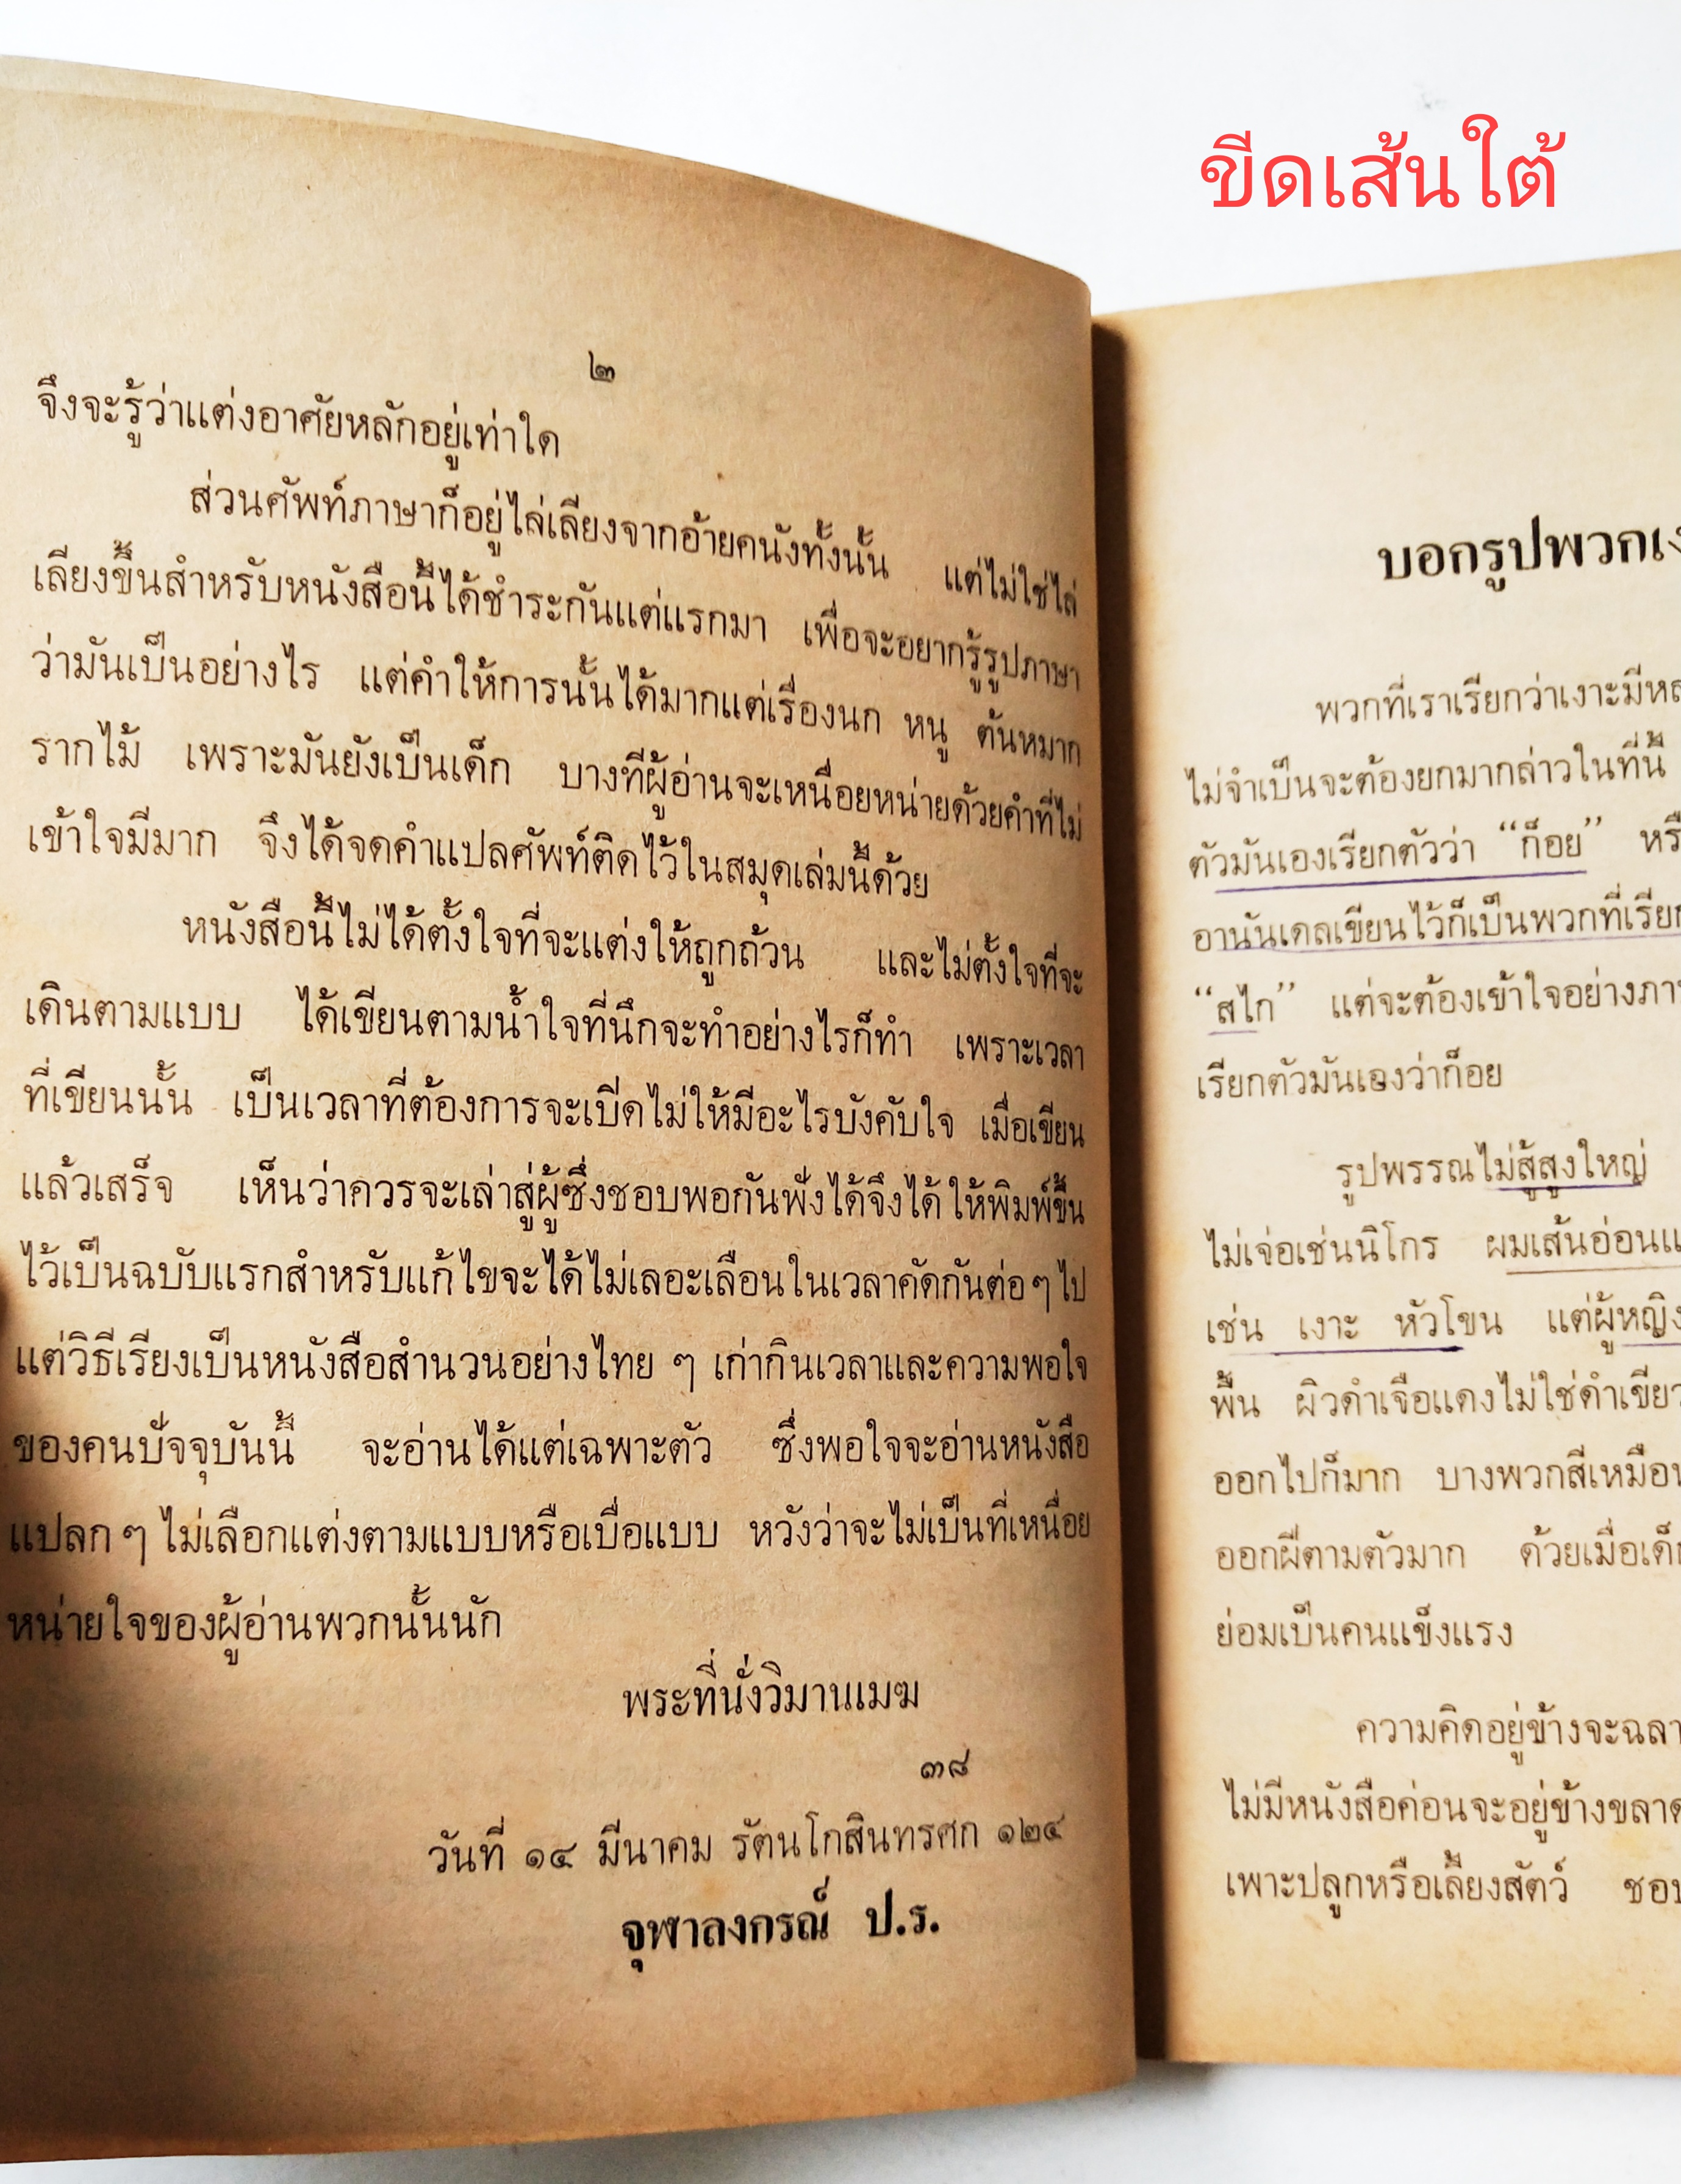 ขีดเส้นใต้
๒
จึงจะรู้ว่าแต่งอาศัยหลักอยู่เท่าใด
ส่วนศัพท์ภาษาก็อยู่ไล่เลียงจากอ้ายคนังทั้งนั้น แต่ไม่ใช่ไล่
เลียงขึ้นสำหรับหนังสือนี้ได้ชำระกันแต่แรกมา เพื่อจะอยากรู้รูปภาษา
ว่ามันเป็นอย่างไร แต่คำให้การนั้นได้มากแต่เรื่องนก หนู ต้นหมาก
รากไม้ เพราะมันยังเป็นเด็ก บางทีผู้อ่านจะเหนื่อยหน่ายด้วยคำที่ไม่
เข้าใจมีมาก จึงได้จดคำแปลศัพท์ติดไว้ในสมุดเล่มนี้ด้วย
หนังสือนี้ไม่ได้ตั้งใจที่จะแต่งให้ถูกถ้วน และไม่ตั้งใจที่จะ
เดินตามแบบ ได้เขียนตามน้ำใจที่นึกจะทำอย่างไรก็ทำ เพราะเวลา
ที่เขียนนั้น เป็นเวลาที่ต้องการจะเปิดไม่ให้มีอะไรบังคับใจ เมื่อเขียน
แล้วเสร็จ เห็นว่าควรจะเล่าสู่ผู้ซึ่งชอบพอกันฟังได้จึงได้ให้พิมพ์ขึ้น
ไว้เป็นฉบับแรกสำหรับแก้ไขจะได้ไม่เลอะเลือนในเวลาคัดกันต่อๆไป
แต่วิธีเรียงเป็นหนังสือสำนวนอย่างไทย ๆ เก่ากินเวลาและความพอใจ
ของคนปัจจุบันนี้ จะอ่านได้แต่เฉพาะตัว ซึ่งพอใจจะอ่านหนังสือ
แปลก ๆ ไม่เลือกแต่งตามแบบหรือเบื่อแบบ หวังว่าจะไม่เป็นที่เหนื่อย
หน่ายใจของผู้อ่านพวกนั้นนัก
พระที่นั่งวิมานเมฆ
๓๘
วันที่ ๑๔ มีนาคม รัตนโกสินทรศก ๑๒๔
จุฬาลงกรณ์ ป.ร.
บอกรูปพวกเง
พวกที่เราเรียกว่าเงาะมีหล
ไม่จำเป็นจะต้องยกมากล่าวในที่นี้
ตัวมันเองเรียกตัวว่า “ก็อย” หรื
อานันเดลเขียนไว้ก็เป็นพวกที่เรียก
“สไก” แต่จะต้องเข้าใจอย่างภา
เรียกตัวมันเองว่าก็อย
รูปพรรณไม่สู้สูงใหญ่
ไม่เจ่อเช่นนิโกร ผมเส้นอ่อนแ
เช่น เงาะ หัวโขน แต่ผู้หญิง
พื้น ผิวดำเจือแดงไม่ใช่ดำเขียว
ออกไปก็มาก บางพวกสีเหมือน
ออกผีตามตัวมาก ด้วยเมื่อเด็ก
ย่อมเป็นคนแข็งแรง
ความคิดอยู่ข้างจะฉลา
ไม่มีหนังสือค่อนจะอยู่ข้างขลาด
เพาะปลูกหรือเลี้ยงสัตว์ ชอบ